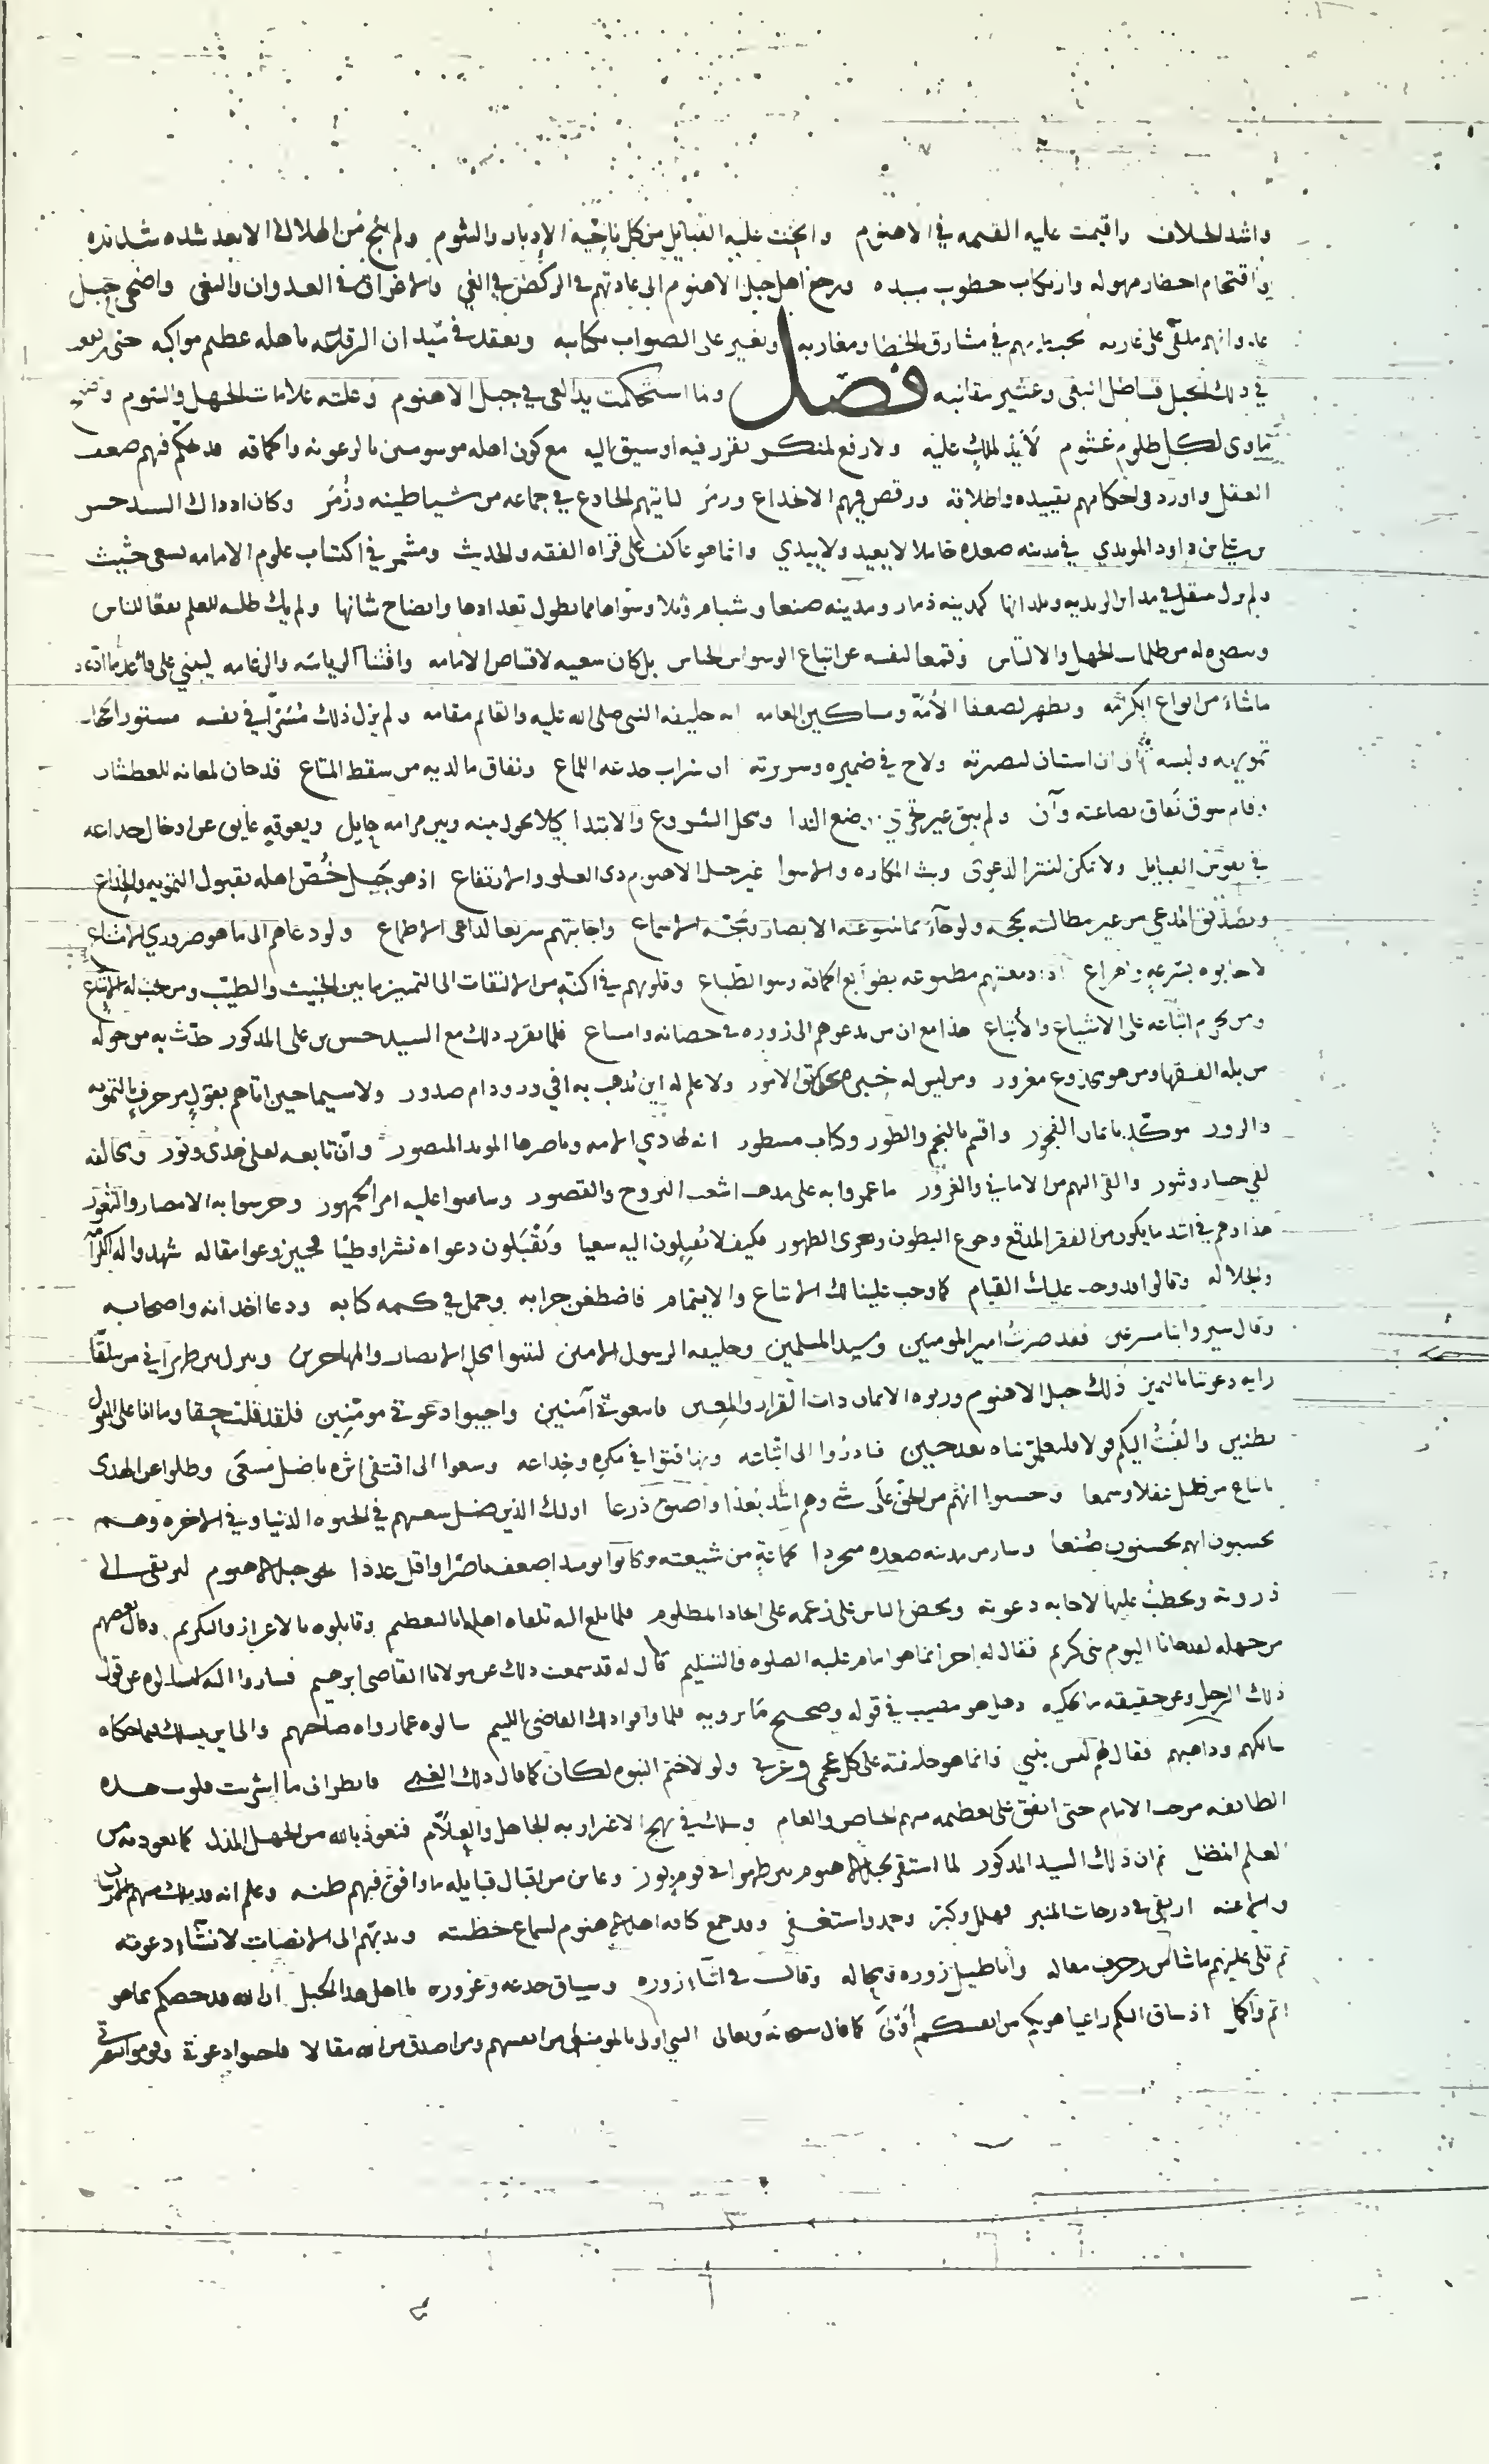 واشتد الخلاف واقيمت عليه القسمه في الاهنوم والجت عليه القبايل من كل ناحية الادبار والشوم ولم ينج من الهلاك الا بعد شده شديده
واقتحام اخطار مهوله وارتكاب خطوب ورجع اهل جبل الاهنوم الى عادتهم في الركض في الغي والاغراق في العدوان والبغي واضحى جبل
ملقى على غاربه في مشارق الخطا ومغاربه وتغير على الصواب كتايبه وتعقد في ميدان باهله عظيم مواكبه حتى
في ذلك الجبل قساطل البغي وعثير مقانبه فصل ولما استحكمت يد الغي في جبل الاهنوم وعلته علامات الجهل والشوم
ماوى لكل ظلوم غشوم لا يد لملك عليه ولا رفع لمنكر تقرر فيه او سيق اليه مع كون اهله موسومين بالرعونه والحماقه فهم ضعف
العقل واورد في احكامهم تقييده واطلاقه ورقص فيهم الاخداع وزمر لما ياتيهم الخادع في جماعه من شياطينه وزمر وكان اذ ذاك السيد حسن
بن علي بن داود المويدي في مدينه صعده خاملا لا يعيد ولا يبدي وانما هو عاكف على قراه الفقه والحديث ومشمر في اكتساب علوم الامامه بسعي حثيث
ولم يزل متنقل في مداين الزيديه وبلدانها كمدينه ذمار ومدينه صنعا وشبام وثلا وسواها مما يطول تعدادها وايضاح شانها ولم يك طلبه للعلم نفعا للناس
من ظلمات الجهل والالتباس وقمعا لنفسه عن اتباع الوسواس الخناس بل كان سعيه لاقتناص الامامه واقتنا الرياسه والزعامه ليبني على قاعدة ما ادعاه
ماشاء من انواع الكرامه ويظهر لضعفا الامة ومساكين العامه انه خليفه النبي صلى الله عليه والقايم مقامه ولم يزل ذلك مستترا في نفسه مستورا
تمويهه ولبسه ولاح في ضميره وسريرته ان سراب خدعه اللماع ونفاق ما لديه من سقط المتاع قد حان لمعانه للعطشان
وقام سوق نفاق بضاعته وآن ولم يبق غير تحري موضع الندا ومحل الشروع والابتدا كيلا يحول بينه وبين مرامه حايل ويعوقه عايق عن ادخال خداعه
في نفوس القبايل ولا تمكن لنشر الدعوى وبث المكاره والاسوا غير جبل الاهنوم ذي العلو والارتفاع اذ هو جبل خص اهله بقبول التمويه والخداع
وتصديق المدعي من غير مطالبته بحجه ولو جاء بما تنبو عنه الابصار وتمجه الاسماع واجابتهم سريعا لداعي الاطماع ولو دعاهم الى ما هو ضروري الامتناع
لاجابوه بسرعه واهراع مطبوعه بطوابع الحماقه وسوا الطباع وقلوبهم في اكنة من الالتفات الى التمييز ما بين الخبيث والطيب ومن يجب له الاتباع
ومن يحرم اثباته على الاشياع والاتباع هذا مع ان من يدعوهم الى زوره في حصانه وامتناع فلما تقرر ذلك مع السيد حسن بن علي المذكور حدث به من حوله
من بله الفقها ومن هو مخدوع مغرور ومن ليس له خبره بحقايق الامور ولا علم له اين يذهب به افي ورود ام صدور ولا سيما حين اتاهم بقول مزخرف بالتمويه
والزور موكد بايمان الفجور واقسم بالنجم والطور وكتاب مسطور انه لهادي الامه وناصرها المويد المنصور وان تابعه لعلى هدى ونور ومخالفه
لفي خسار وثبور والقى اليهم من الاماني والغرور ما عمروا به على مذهب اشعب البروج والقصور وساسوا عليه امر الجمهور وحرسوا به الامصار والثغور
هذا وهم في اشد ما يكون من الفقر المدقع وجوع البطون وعري الظهور فكيف لا يقبلون اليه سعيا ويقبلون دعواه نشرا وطيا فحين وعوا مقاله شهدوا له
وجلاله وقالوا قد وجب عليك القيام كما وجب علينا لك الاتباع والايتمام فاضطغن جرابه وحمل في كمه كتابه ودعا اخدانه واصحابه
وقال سيروا بنا مسرعين فقد صرت امير المومنين وسيد المسلمين وخليفه الرسول الامين لتنبوا محل الانصار والمهاجرين وننزل بين ظهراني من يتلقا
رايه دعوتنا باليمين ذلك جبل الاهنوم وربوه الايمان ذات القرار والمعين فاتبعوني آمنين واجيبوا دعوتي مومنين فلقد قلت حقا وما انا على القول
بظنين والقيت اليكم قولا فلتعلمن نباه بعد حين فبادروا الى اثباته وتهافتوا في مكره وخداعه وسعوا الى اقتفى اثره باضل مسعى وضلوا عن الهدى
باتباع من ضل عقلا وسمعا وحسبوا انهم من الحق على شي وهم اشد بعدا واضيق ذرعا اولئك الذين ضل سعيهم في الحيوه الدنيا وفي الاخره وهم
يحسبون انهم يحسنون صنعا وسار من مدينه صعده من شيعته وكانوا يوميذ اضعف ناصرا واقل عددا نحو جبل الاهنوم ليرتقي الى
ذروته ويخطب عليها لاجابه دعوته ويحض الناس على زعمه على المظلوم فلما بلغ اليه تلقاه اهله بالتعظيم وقابلوه بالاعزاز والتكريم وقال بعضهم
من جهله لقد جانا اليوم نبي كريم فقال له اخر انما هو امام عليه الصلوه والتسليم قال له قد سمعت ذلك عن مولانا القاضي ابرهيم فساروا اليه ليسالوه عن قول
ذلك الرجل وعن حقيقه ما يحكيه وهل هو مصيب في قوله وصحيح ما يرويه فلما وافوا ذلك القاضي اللييم سالوه عما رواه صاحبهم
سالكهم وذاهبهم فقال لهم ليس بنبي وانما هو خليفته على كل عجمي وعربي ولو لا ختم النبوه لكان كما قال ذلك فانظر الى ما اشربت قلوب هذه
الطايفه من حب الامام حتى اتفق على تعظيمه منهم الخاص والعام وسلك في نهج الاغترار به الجاهل والعلام فنعوذ بالله من الجهل المذل كما نعوذ به من
العلم المضل ثم ان ذلك السيد المذكور لما استقر بجبل الاهنوم بين ظهراني قوم بور وعاين من اقبال قبايله ما وافق فيهم ظنه وعلم انه قد ملك منهم
ارتقى في درجات المنبر فهلل وكبر وحمد واستغفر وقد جمع كافه اهل الاهنوم لسماع خطبته وندبهم الى الانصات لانشاء دعوته
ثم تلى عليهم ماشا من زخرف مقاله واباطيل زوره ومحاله وقال في اثناء زوره وسياق خدعه وغروره يا اهل هذا الجبل ان الله قد خصكم بما هو
اتم واكمل اذ ساق اليكم راعيا هو بكم من انفسكم اولى كما قال سبحانه وتعالى النبي اولى بالمومنين من انفسهم ومن اصدق من الله مقالا فاجيبوا دعوتي وقوموا